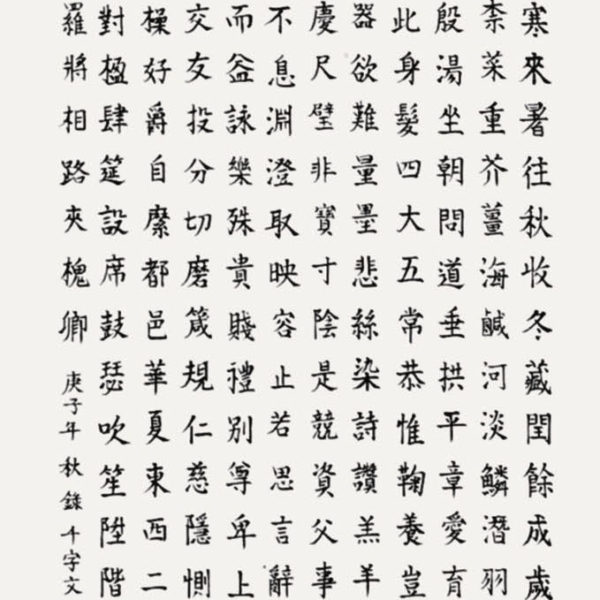 寒來暑往秋收冬藏閏餘成歲
柰菜重芥薑海鹹河淡鱗潛羽
殷湯坐朝問道垂拱平章愛育
此身髮四大五常恭惟鞠養豈
器欲難量墨悲絲染詩讚羔羊
慶尺璧非寶寸陰是競資父事
不息淵澄取映容止若思言辭
而益詠樂殊貴賤禮別尊卑上
交友投分切磨箴規仁慈隱惻
操好爵自縻都邑華夏東西二
對楹肆筵設席鼓瑟吹笙陞階
羅將相路夾槐卿
庚子年秋錄千字文